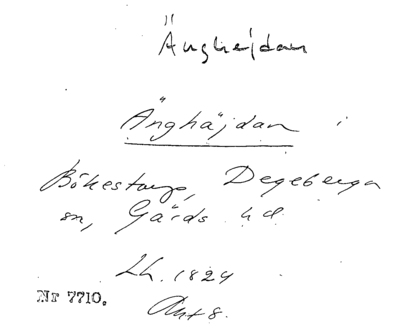 Änghejdan
Änghäjdan i
Bökestorp, Degeberga
sn, Gärds hd
Lh. 1824
Nr 7710.
Akt 8.